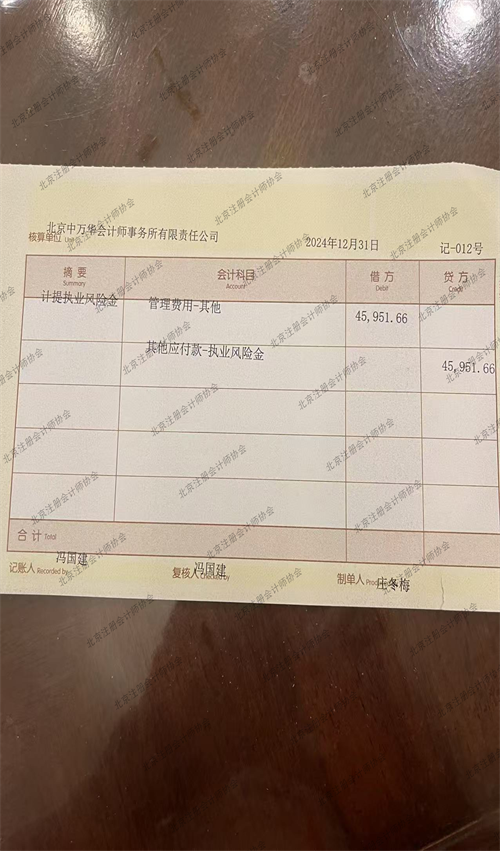 北京中万华会计师事务所有限责任公司
核算单位 Unit 2024年12月31日 记-012号
摘要 会计科目 借方 贷方
Summary Account Debit Credit
计提执业风险金 管理费用-其他 45,951.66
其他应付款-执业风险金 45,951.66
合计 Total
冯国建 冯国建 庄冬梅
记账人 Recorded by 复核人 Checked by 制单人
北京注册会计师协会